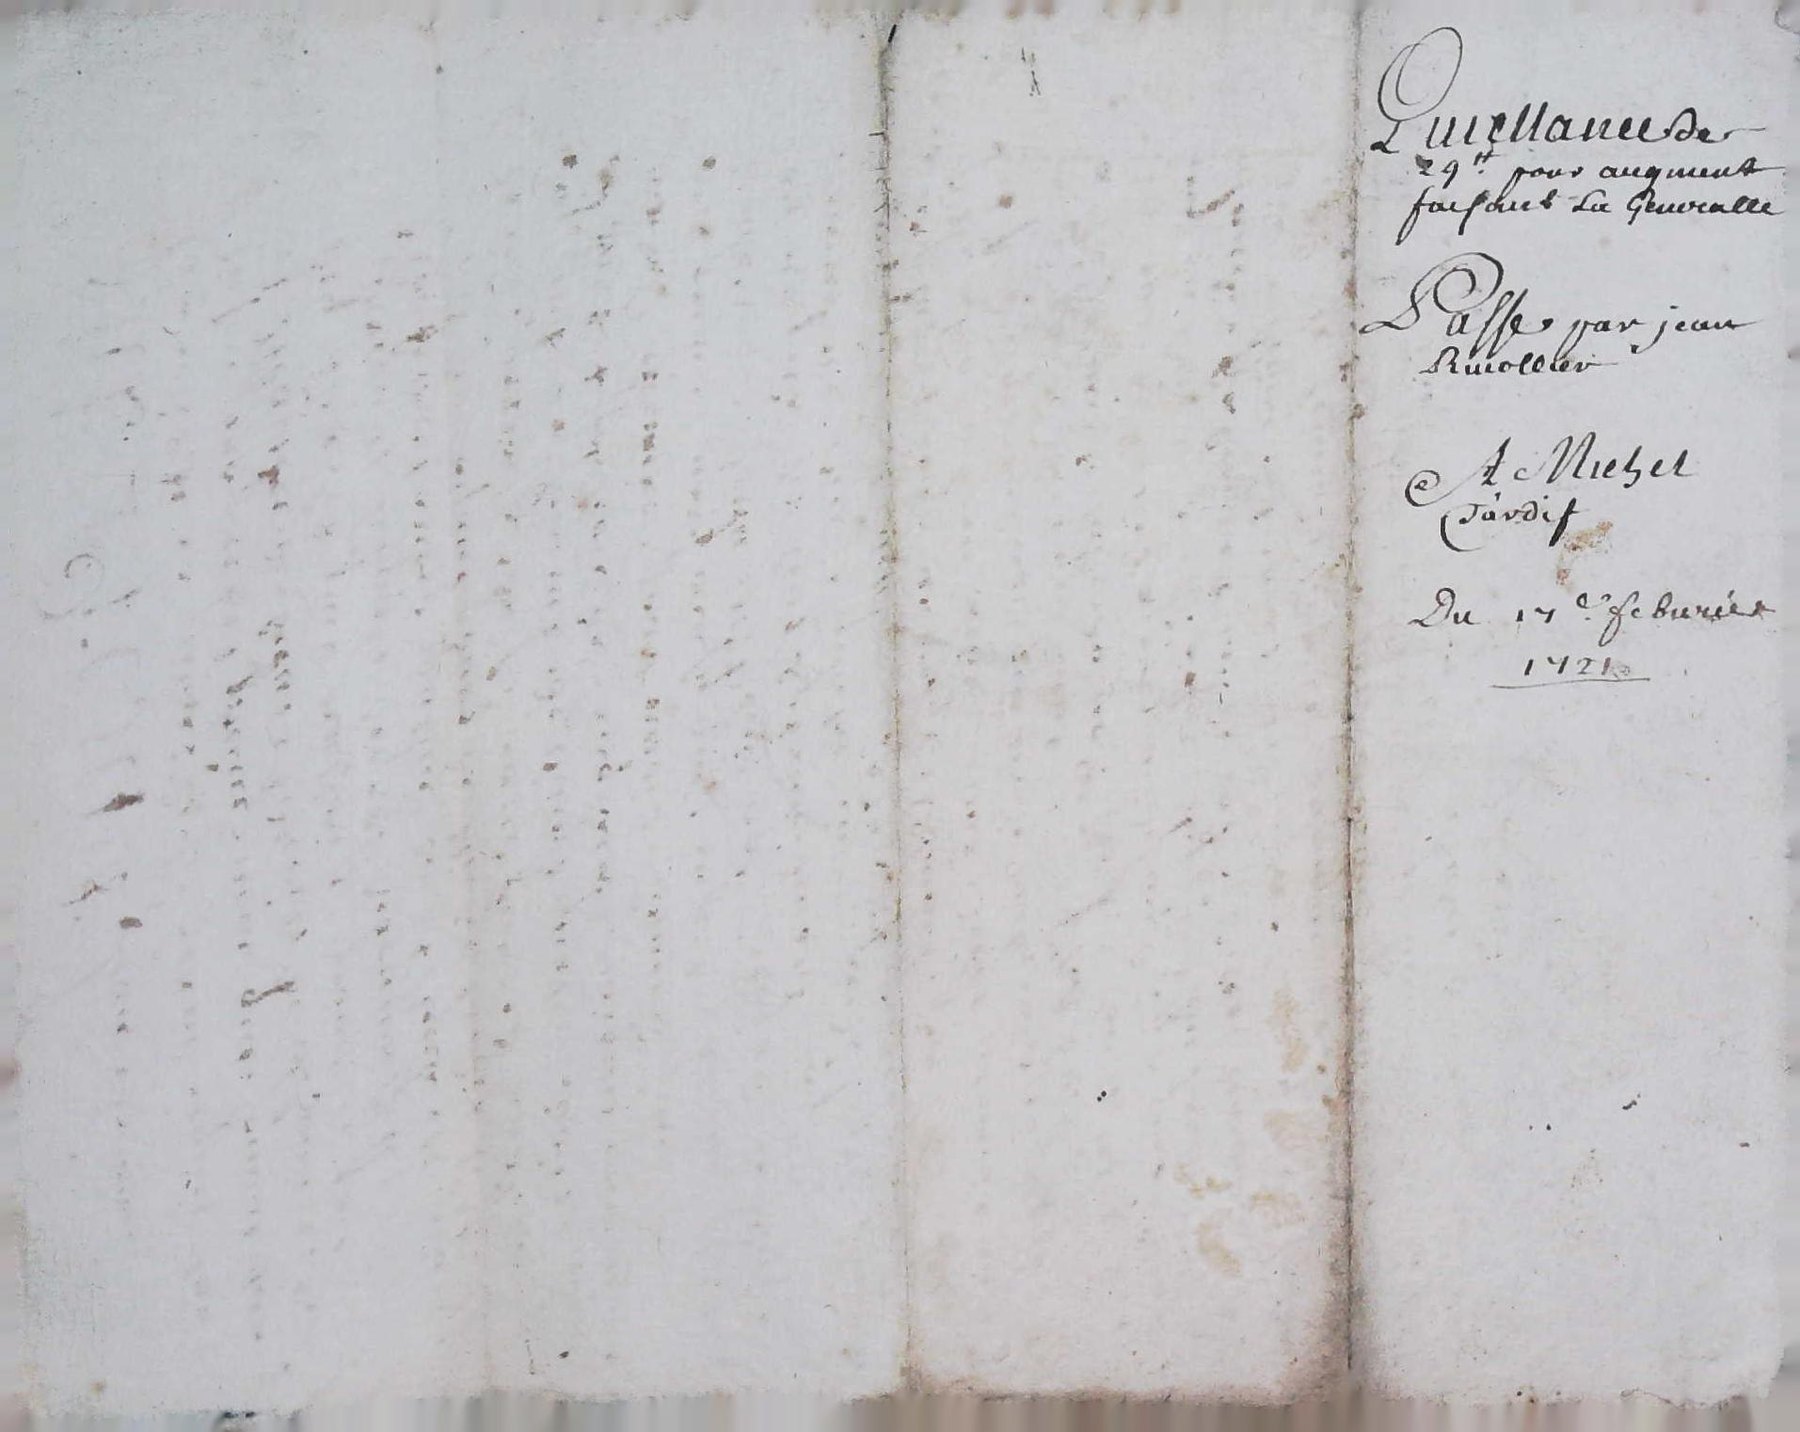 Quittance de
29tt pour augment
faisant La Generalle
Passe par jean
Ruiollier
A Michel
Tardif
Du 17e febvrier
1721